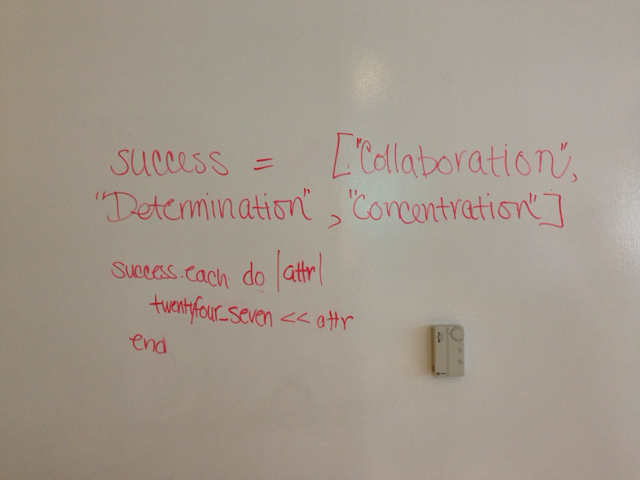 success = ["Collaboration",
"Determination", "Concentration"]
success.each do |attr|
twentyfour_seven << attr
end